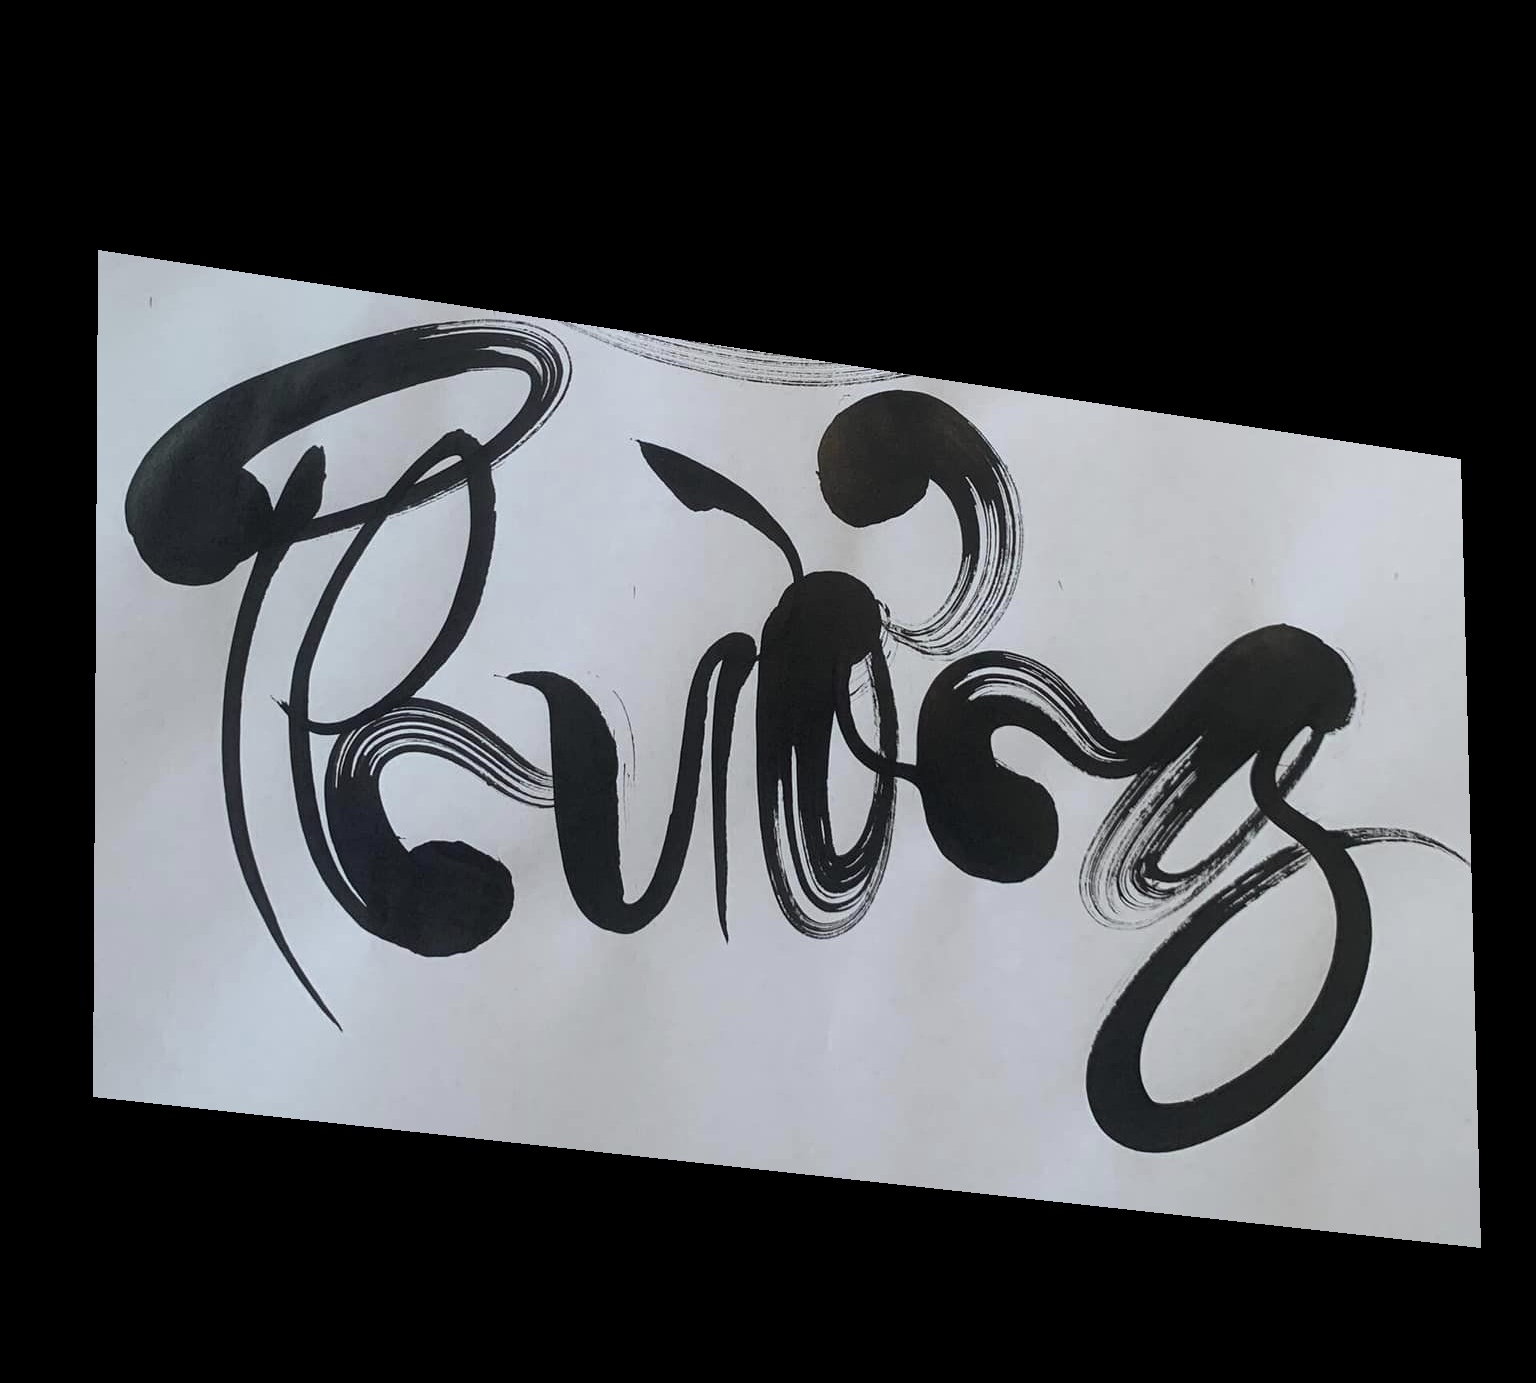 Phường